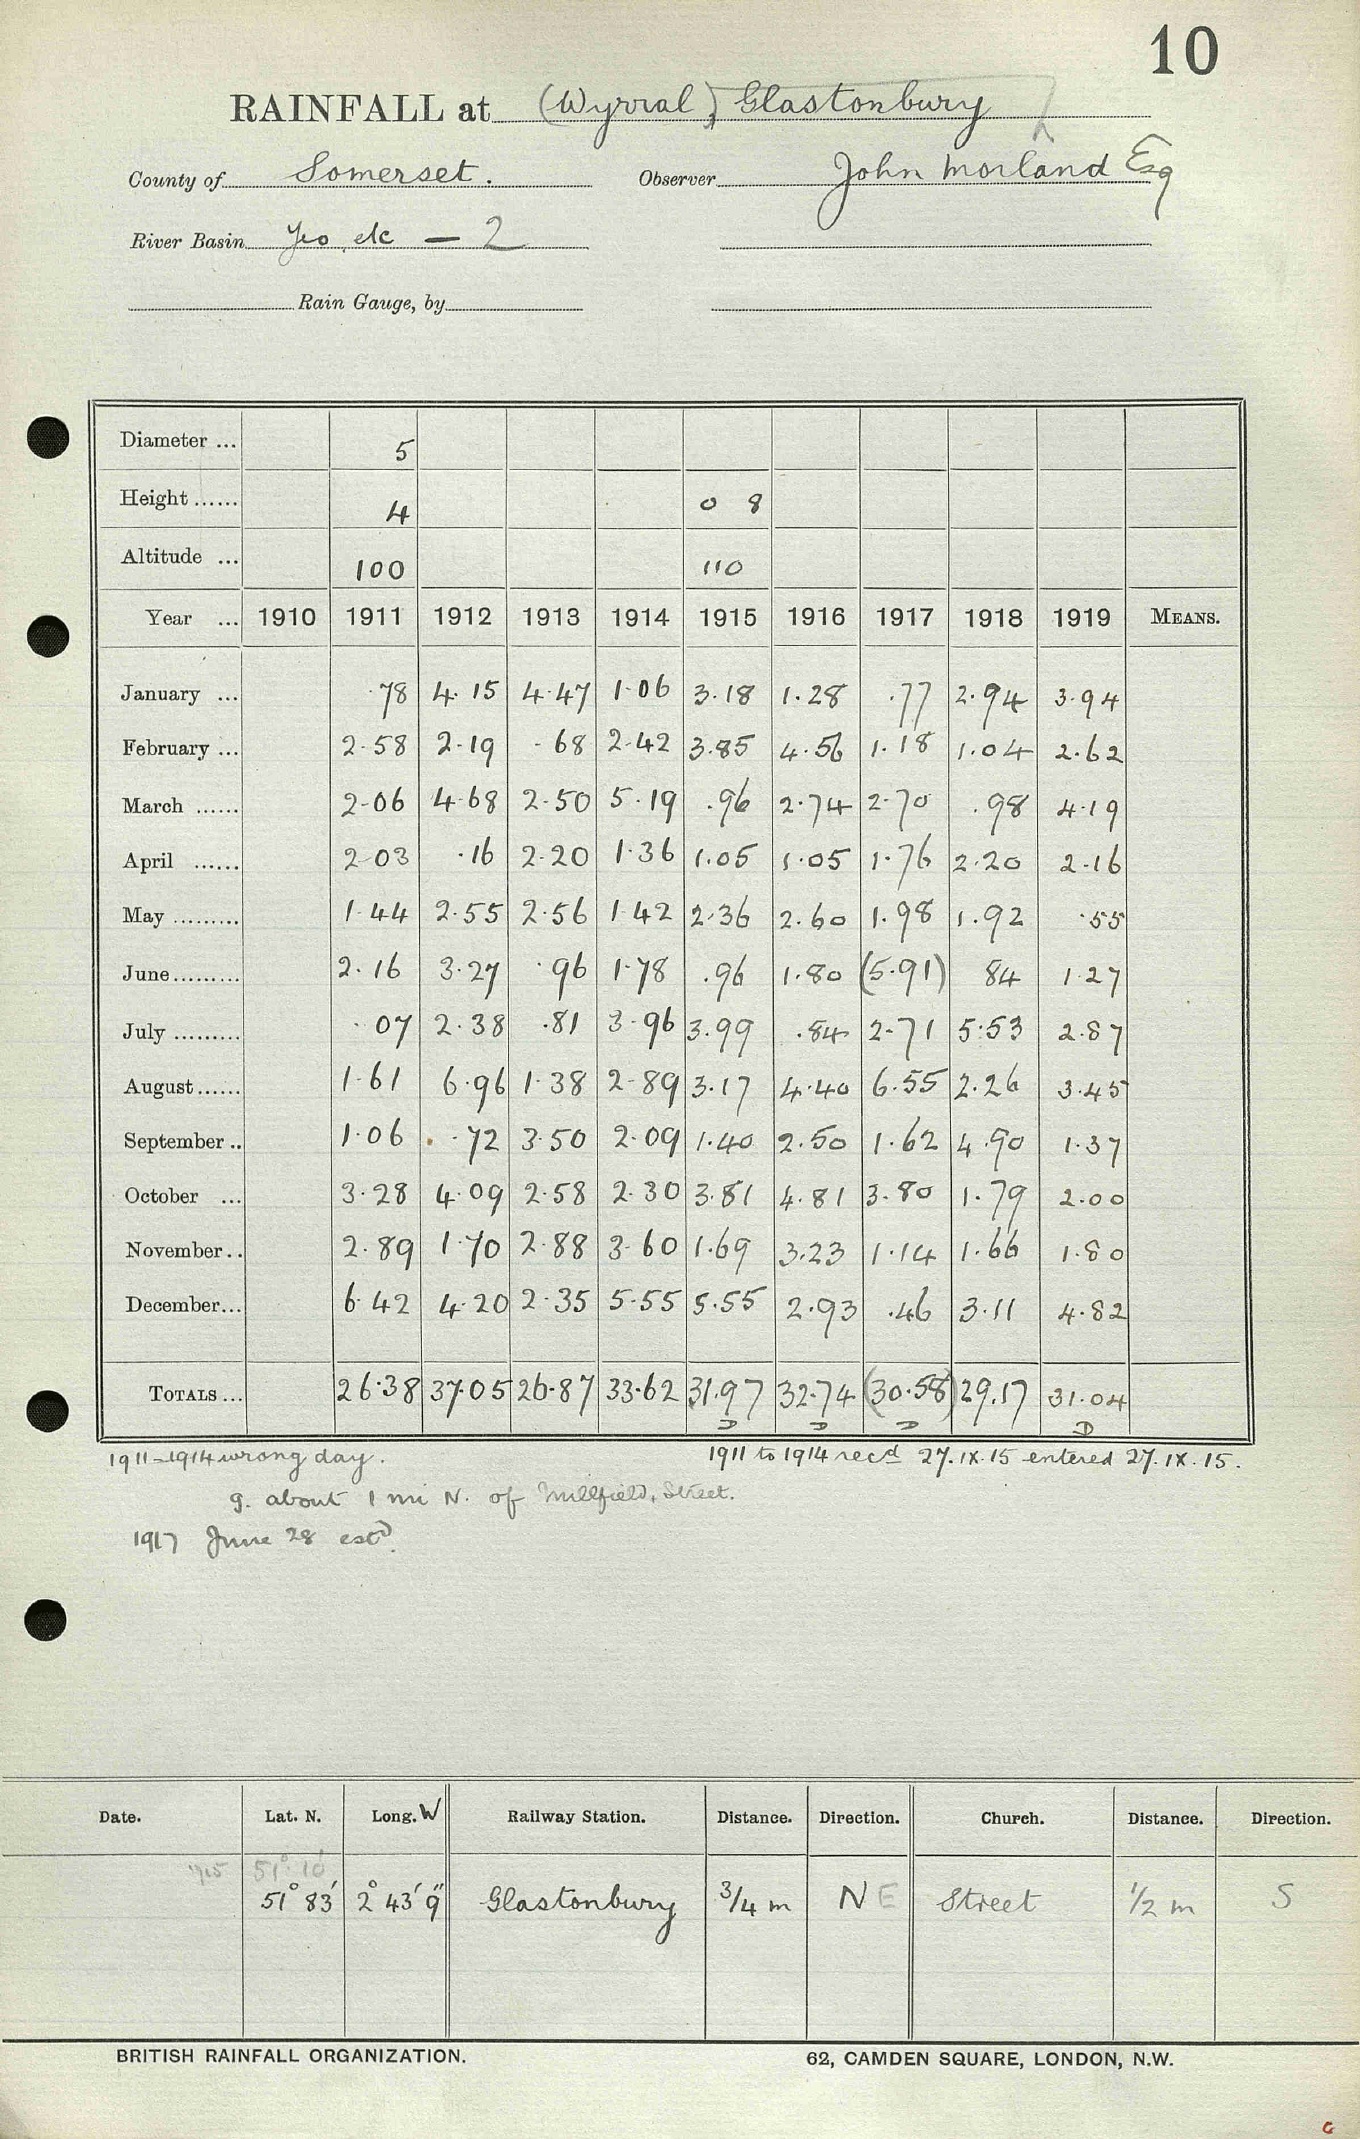 10
RAINFALL at (Wyrral), Glastonbury
County of Somerset. Observer John Morland Esq
River Basin Yeo, etc — 2
Rain Gauge, by
Diameter ... 5
Height ...... 4 0 8
Altitude ... 100 110
Year ... 1910 1911 1912 1913 1914 1915 1916 1917 1918 1919 MEANS.
January ... .78 4.15 4.47 1.06 3.18 1.28 .77 2.94 3.94
February ... 2.58 2.19 .68 2.42 3.85 4.56 1.18 1.04 2.62
March ...... 2.06 4.68 2.50 5.19 .96 2.74 2.70 .98 4.19
April ...... 2.03 .16 2.20 1.36 1.05 1.05 1.76 2.20 2.16
May ......... 1.44 2.55 2.56 1.42 2.36 2.60 1.98 1.92 .55
June ......... 2.16 3.27 .96 1.78 .96 1.80 (5.91) 84 1.27
July ......... .07 2.38 .81 3.96 3.99 .84 2.71 5.53 2.87
August ...... 1.61 6.96 1.38 2.89 3.17 4.40 6.55 2.26 3.45
September .. 1.06 .72 3.50 2.09 1.40 2.50 1.62 4.90 1.37
October ... 3.28 4.09 2.58 2.30 3.81 4.81 3.80 1.79 2.00
November .. 2.89 1.70 2.88 3.60 1.69 3.23 1.14 1.66 1.80
December ... 6.42 4.20 2.35 5.55 5.55 2.93 .46 3.11 4.82
TOTALS ... 26.38 37.05 26.87 33.62 31.97 32.74 (30.58) 29.17 31.04
D D D D
1911–1914 wrong day. 1911 to 1914 recd 27.IX.15 entered 27.IX.15.
g. about 1 mi N. of Millfield, Street.
1917 June 28 estd.
Date. Lat. N. Long. W Railway Station. Distance. Direction. Church. Distance. Direction.
1915 51° 10'
51° 83' 2° 43' 9" Glastonbury 3/4 m NE Street 1/2 m S
BRITISH RAINFALL ORGANIZATION. 62, CAMDEN SQUARE, LONDON, N.W.